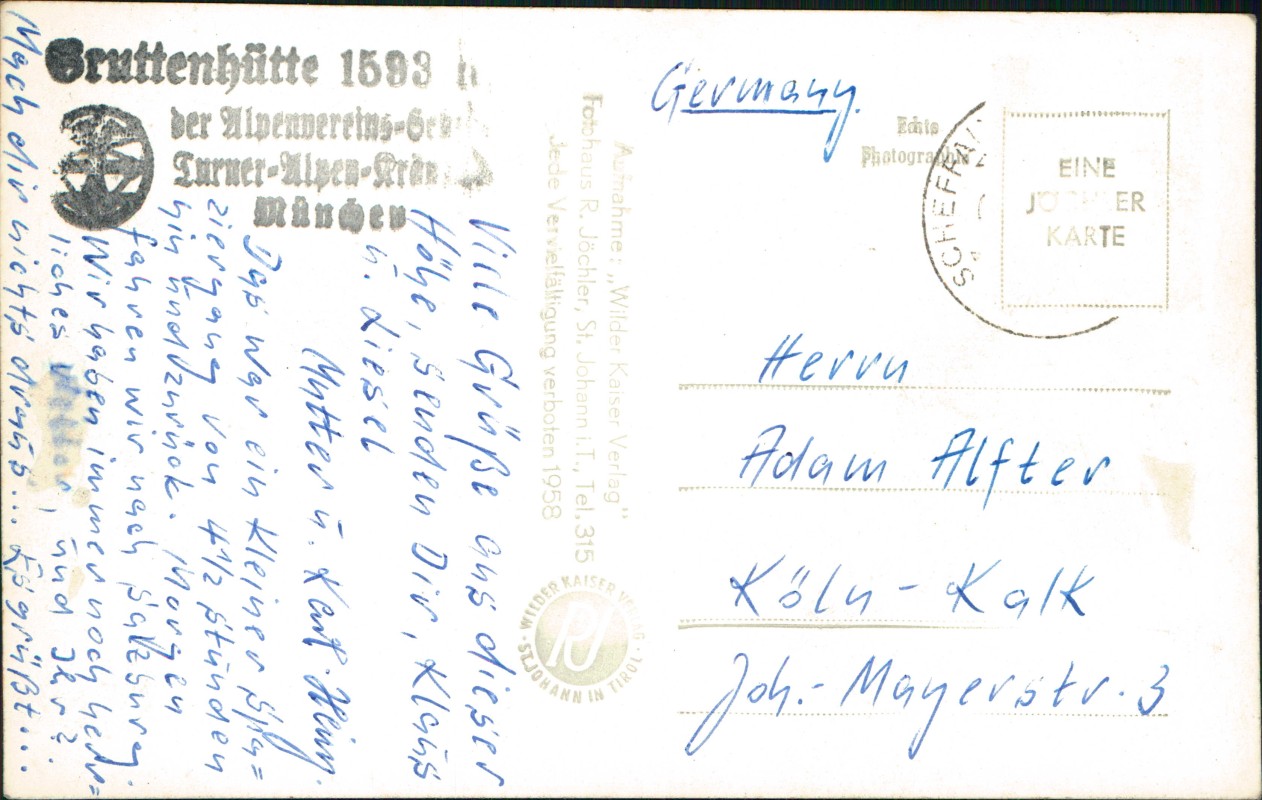 Gruttenhütte 1593
der Alpenvereins-
Turner-Alpen-
München
Viele Grüße aus dieser
Höhe, senden Dir, Klaus
u. Liesel
Mutter u. Karl-Heinz.
Das war ein kleiner Spa=
ziergang von 4 1/2 Stunden
hin und zurück. Morgen
fahren wir nach Salzburg.
Wir haben immer noch herr=
liches Wetter, und Ihr?
Mach dir nichts draus... Es grüßt...
Aufnahme: „Wilder Kaiser Verlag"
Fotohaus R. Jöchler, St. Johann i. T., Tel. 315
Jede Vervielfältigung verboten 1958
· WILDER KAISER VERLAG ·
ST. JOHANN IN TIROL
Germany.
Echte
Photographie
SCHEFFAU
EINE
JÖCHLER
KARTE
Herrn
Adam Alfter
Köln-Kalk
Joh.-Mayerstr. 3